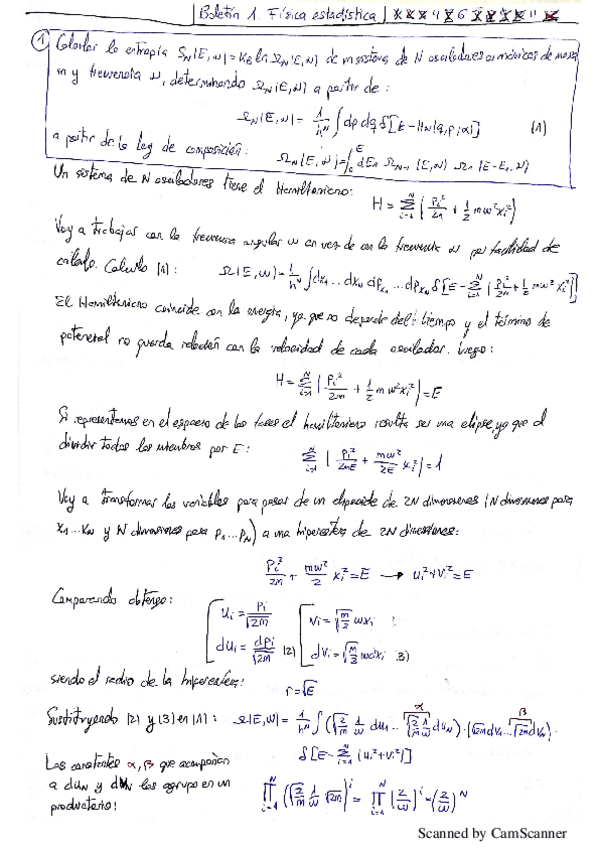 Boletín 1. Física estadística
① Calcular la entropía S_N(E,N) = K_B ln Ω_N(E,N) de un sistema de N osciladores armónicos de masa
m y frecuencia ν, determinando Ω_N(E,N) a partir de:
Ω_N(E,N) = 1/h^N ∫ dp dq δ[E - H_N(q,p;α)] (1)
a partir de la ley de composición:
Un sistema de N osciladores tiene el Hamiltoniano:
H = Σ_{i=1}^N (p_i²/2m + 1/2 mω²x_i²)
Voy a trabajar con la frecuencia angular ω en vez de con la frecuencia ν por facilidad de
cálculo. Calculo (1): Ω(E,ω) = 1/h^N ∫ dx_1 ... dx_N dp_{x1} ... dp_{xN} δ[E - Σ_{i=1}^N (p_i²/2m + 1/2 mω²x_i²)]
El Hamiltoniano coincide con la energía, ya que no depende del tiempo y el término de
potencial no guarda relación con la velocidad de cada oscilador. Luego:
H = Σ_{i=1}^N (p_i²/2m + 1/2 mω²x_i²) = E
Si representamos en el espacio de las fases el hamiltoniano resulta ser una elipse, ya que al
dividir todos los miembros por E:
Σ_{i=1}^N (p_i²/2mE + mω²/2E x_i²) = 1
Voy a transformar las variables para pasar de un elipsoide de 2N dimensiones (N dimensiones para
x_1...x_N y N dimensiones para p_1...p_N) a una hiperesfera de 2N dimensiones:
p_i²/2m + mω²/2 x_i² = E → u_i² + v_i² = E
Comparando obtengo:
u_i = p_i/√2m v_i = √(m/2) ωx_i
du_i = dp_i/√2m (2) dv_i = √(m/2) ωdx_i (3)
siendo el radio de la hiperesfera: r = √E
Sustituyendo (2) y (3) en (1): Ω(E,ω) = 1/h^N ∫ (√(2/m) 1/ω du_1 ... √(2/m) 1/ω du_N) · (√2m dv_1 ... √2m dv_N) ·
α β
δ[E - Σ_{i=1}^N (u_i² + v_i²)]
Las constantes α, β que acompañan
a du_N y dv_N las agrupo en un
productorio: ∏_{i=1}^N (√(2/m) 1/ω √2m)^i = ∏_{i=1}^N (2/ω)^i = (2/ω)^N
Scanned by CamScanner